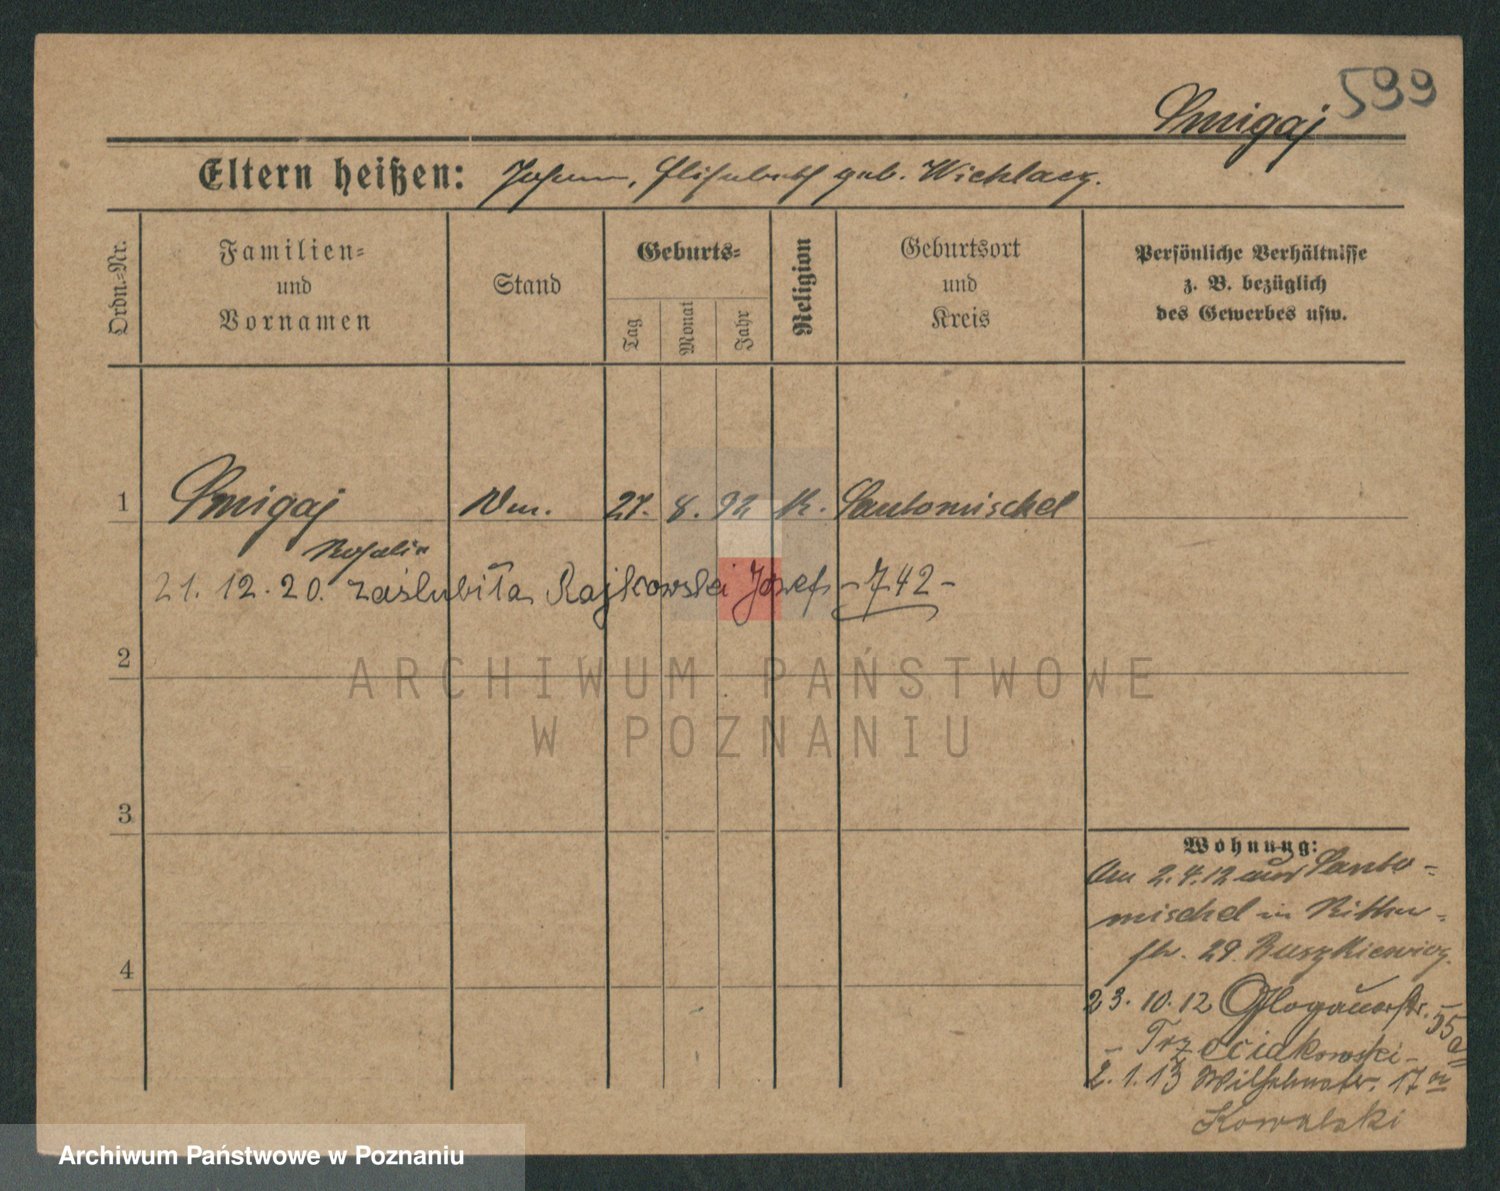 599
Smigaj
Eltern heißen: Johann, Elisabeth geb. Wichlacz.
Ordn.-Nr.
Familien-
und
Vornamen
Stand
Geburts-
Tag
Monat
Jahr
Religion
Geburtsort
und
Kreis
Persönliche Verhältnisse
z. B. bezüglich
des Gewerbes usw.
1 Smigaj 27. 8. 92 k. Santomischel
Rosalie
21. 12. 20. zaślubiła Rajkowski Józef - 742 -
2
3
4
Wohnung:
Am 2.4.12 aus Santo-
mischel in Ritter-
str. 29. Ruszkiewicz.
23. 10. 12 Glogauerstr. 55a
- Trzeciakowski -
2. 1. 13 Wilhelmstr. 17
Kowalski
ARCHIWUM PAŃSTWOWE
W POZNANIU
Archiwum Państwowe w Poznaniu